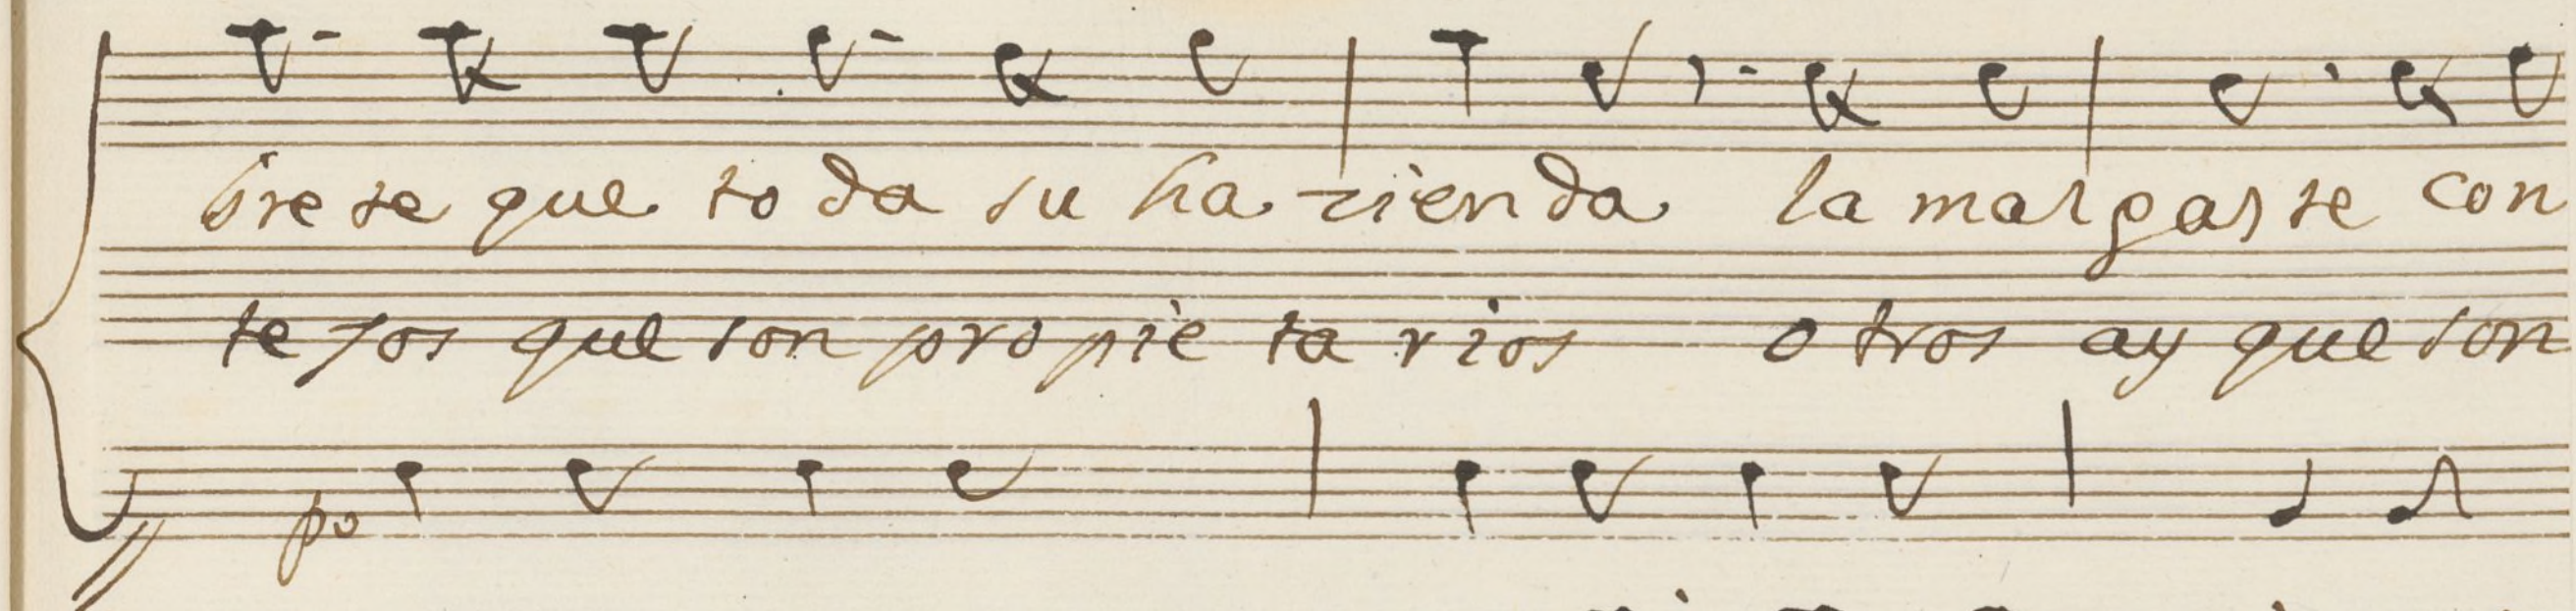 brete que to da su ha zien da la mal gas te con
te jos que son pro pie ta rios o tros ay que son
po